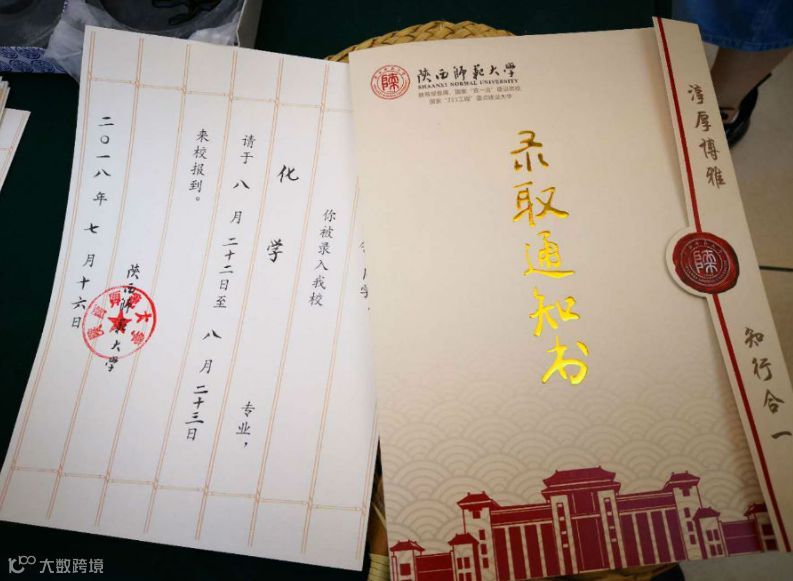 你被录入我校
化学
专业，
请于八月二十二日至八月二十三日
来校报到。
陕西师范大学
二〇一八年七月十六日
陕西师范大学
SHAANXI NORMAL UNIVERSITY
教育部直属、国家“双一流”建设高校
国家“211工程”重点建设大学
录取通知书
淳厚博雅
知行合一
陕
大数跨境